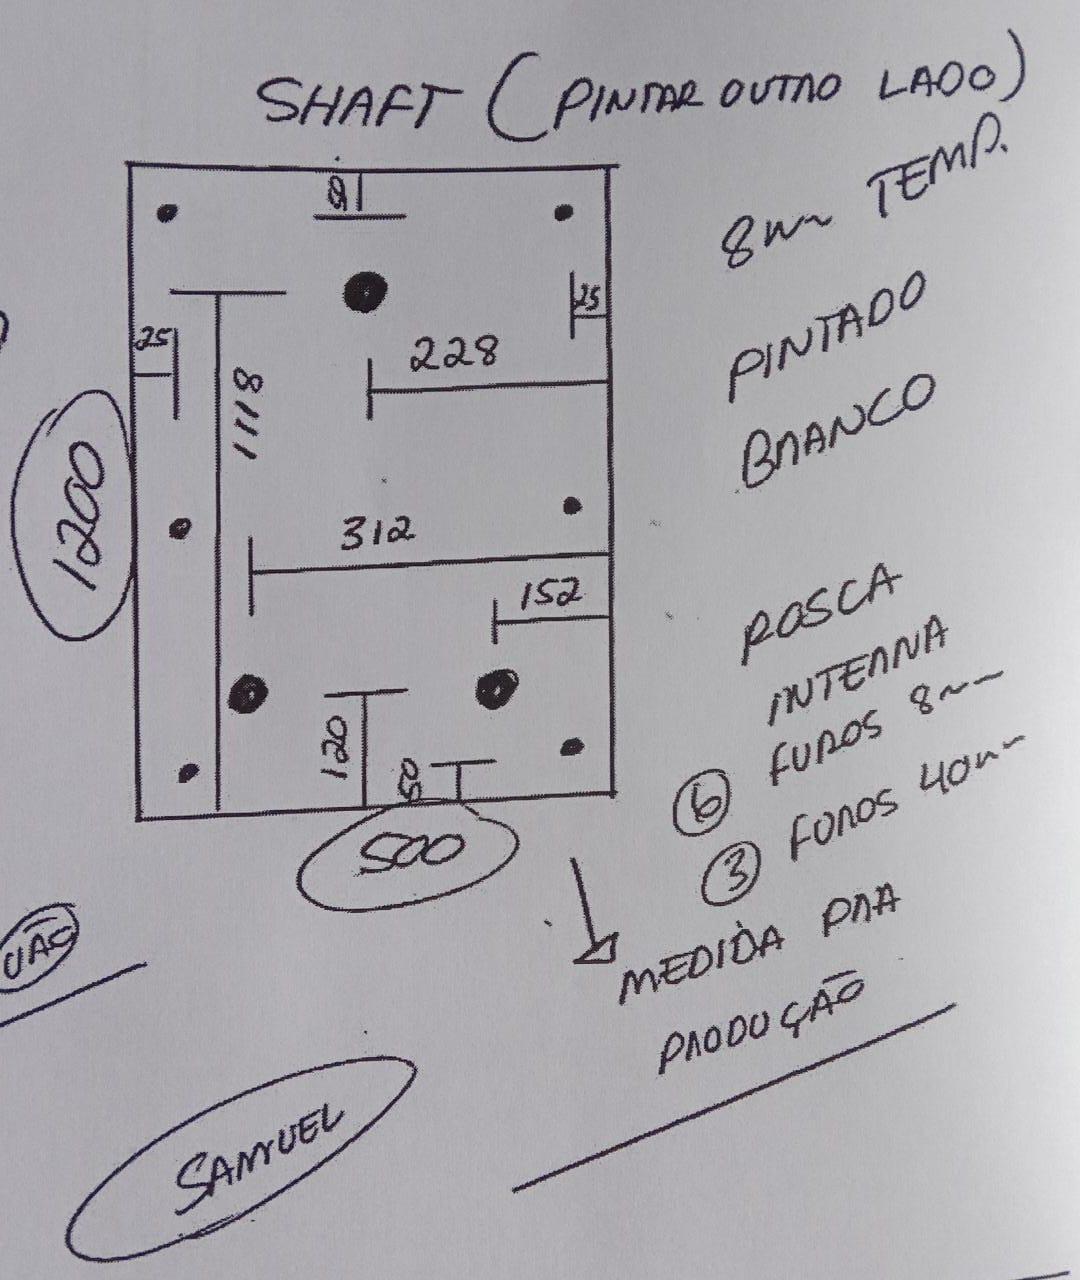 SHAFT (PINTAR OUTRO LADO)
8mm TEMP.
PINTADO
BRANCO
25
25
228
1118
1200
312
152
120
50
500
ROSCA
INTERNA
6 FUROS 8mm
3 FUROS 40mm
MEDIDA PRA
PRODUÇÃO
VÃO
SAMUEL